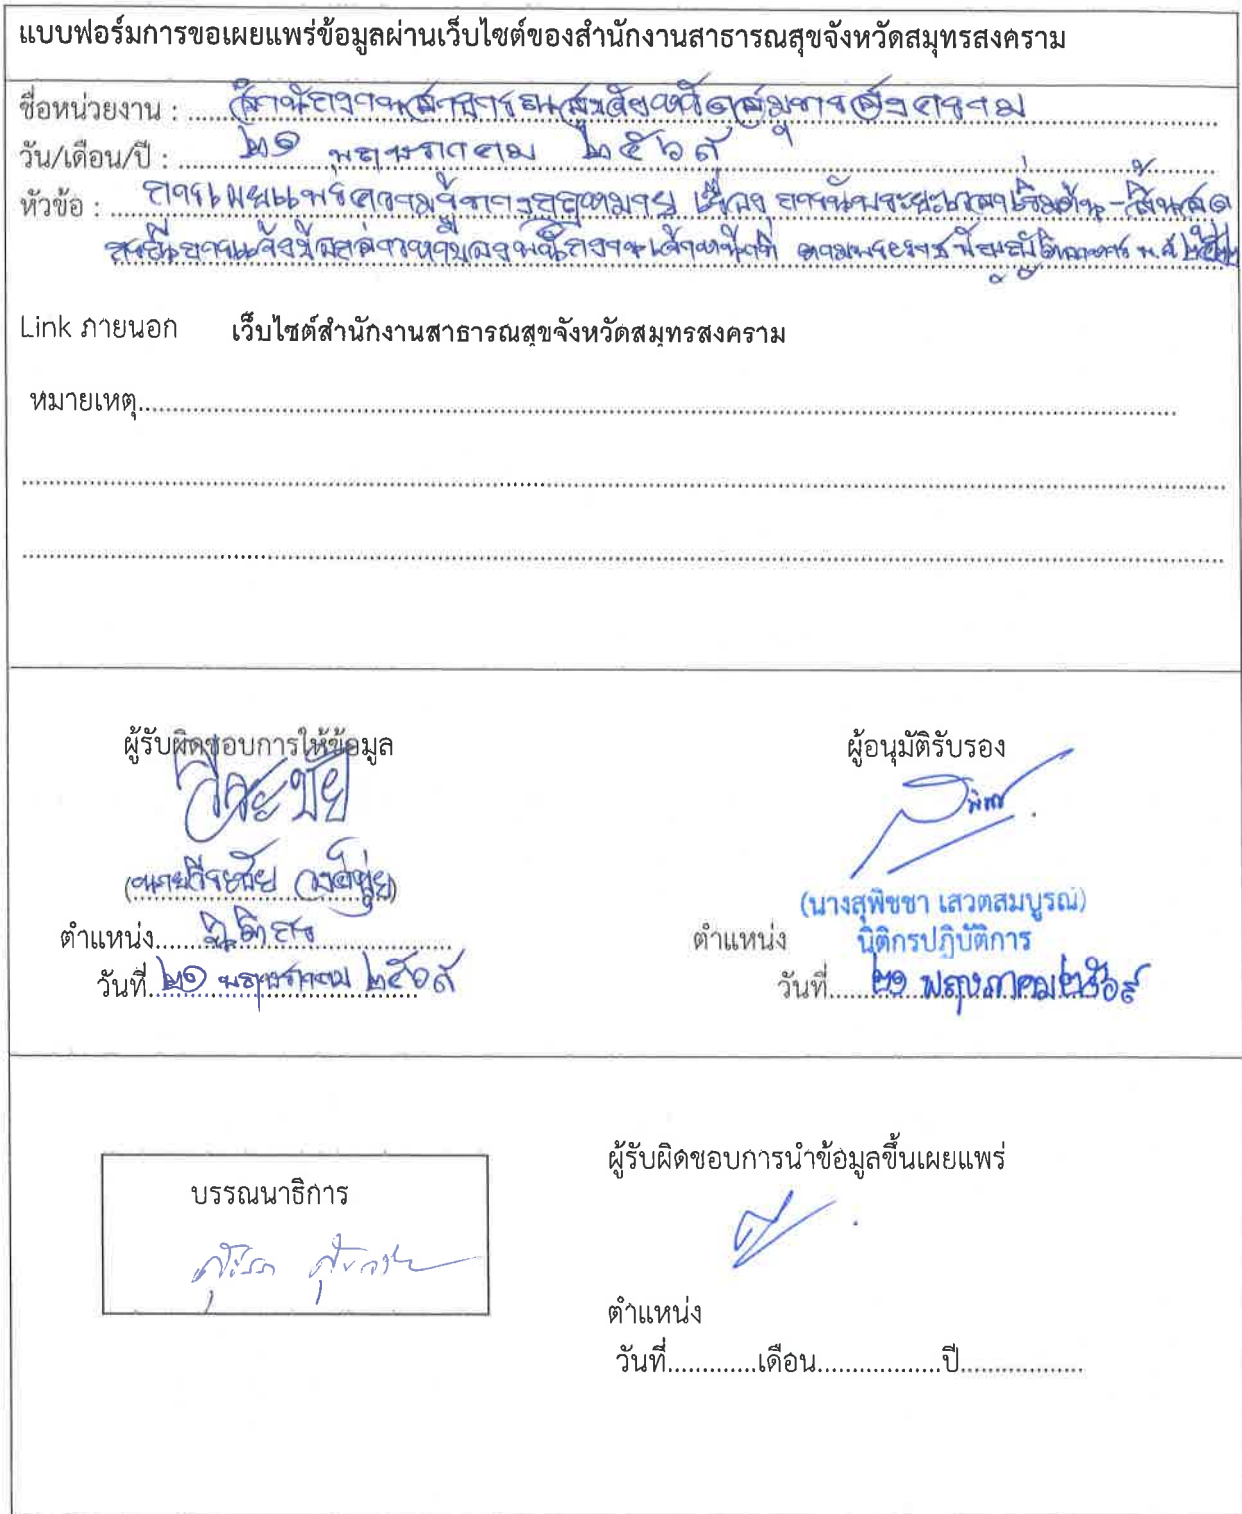 แบบฟอร์มการขอเผยแพร่ข้อมูลผ่านเว็บไซต์ของสำนักงานสาธารณสุขจังหวัดสมุทรสงคราม
ชื่อหน่วยงาน : สำนักงานสาธารณสุขจังหวัดสมุทรสงคราม
วัน/เดือน/ปี : ๒๑ พฤษภาคม ๒๕๖๙
หัวข้อ : การเผยแพร่ความรู้ทางกฎหมาย เรื่อง การนับระยะเวลาเริ่มต้น-สิ้นสุด
กรณีการแจ้งข้อกล่าวหาของพนักงานเจ้าหน้าที่ ตามพระราชบัญญัติ พ.ศ.
Link ภายนอก เว็บไซต์สำนักงานสาธารณสุขจังหวัดสมุทรสงคราม
หมายเหตุ
ผู้รับผิดชอบการให้ข้อมูล
วีระชัย
(นายวีระชัย)
ตำแหน่ง นิติกร
วันที่ ๒๑ พฤษภาคม ๒๕๖๙
ผู้อนุมัติรับรอง
(นางสุพิชชา เสวตสมบูรณ์)
ตำแหน่ง นิติกรปฏิบัติการ
วันที่ ๒๑ พฤษภาคม ๒๕๖๙
บรรณนาธิการ
ผู้รับผิดชอบการนำข้อมูลขึ้นเผยแพร่
ตำแหน่ง
วันที่.............เดือน.................ปี.................